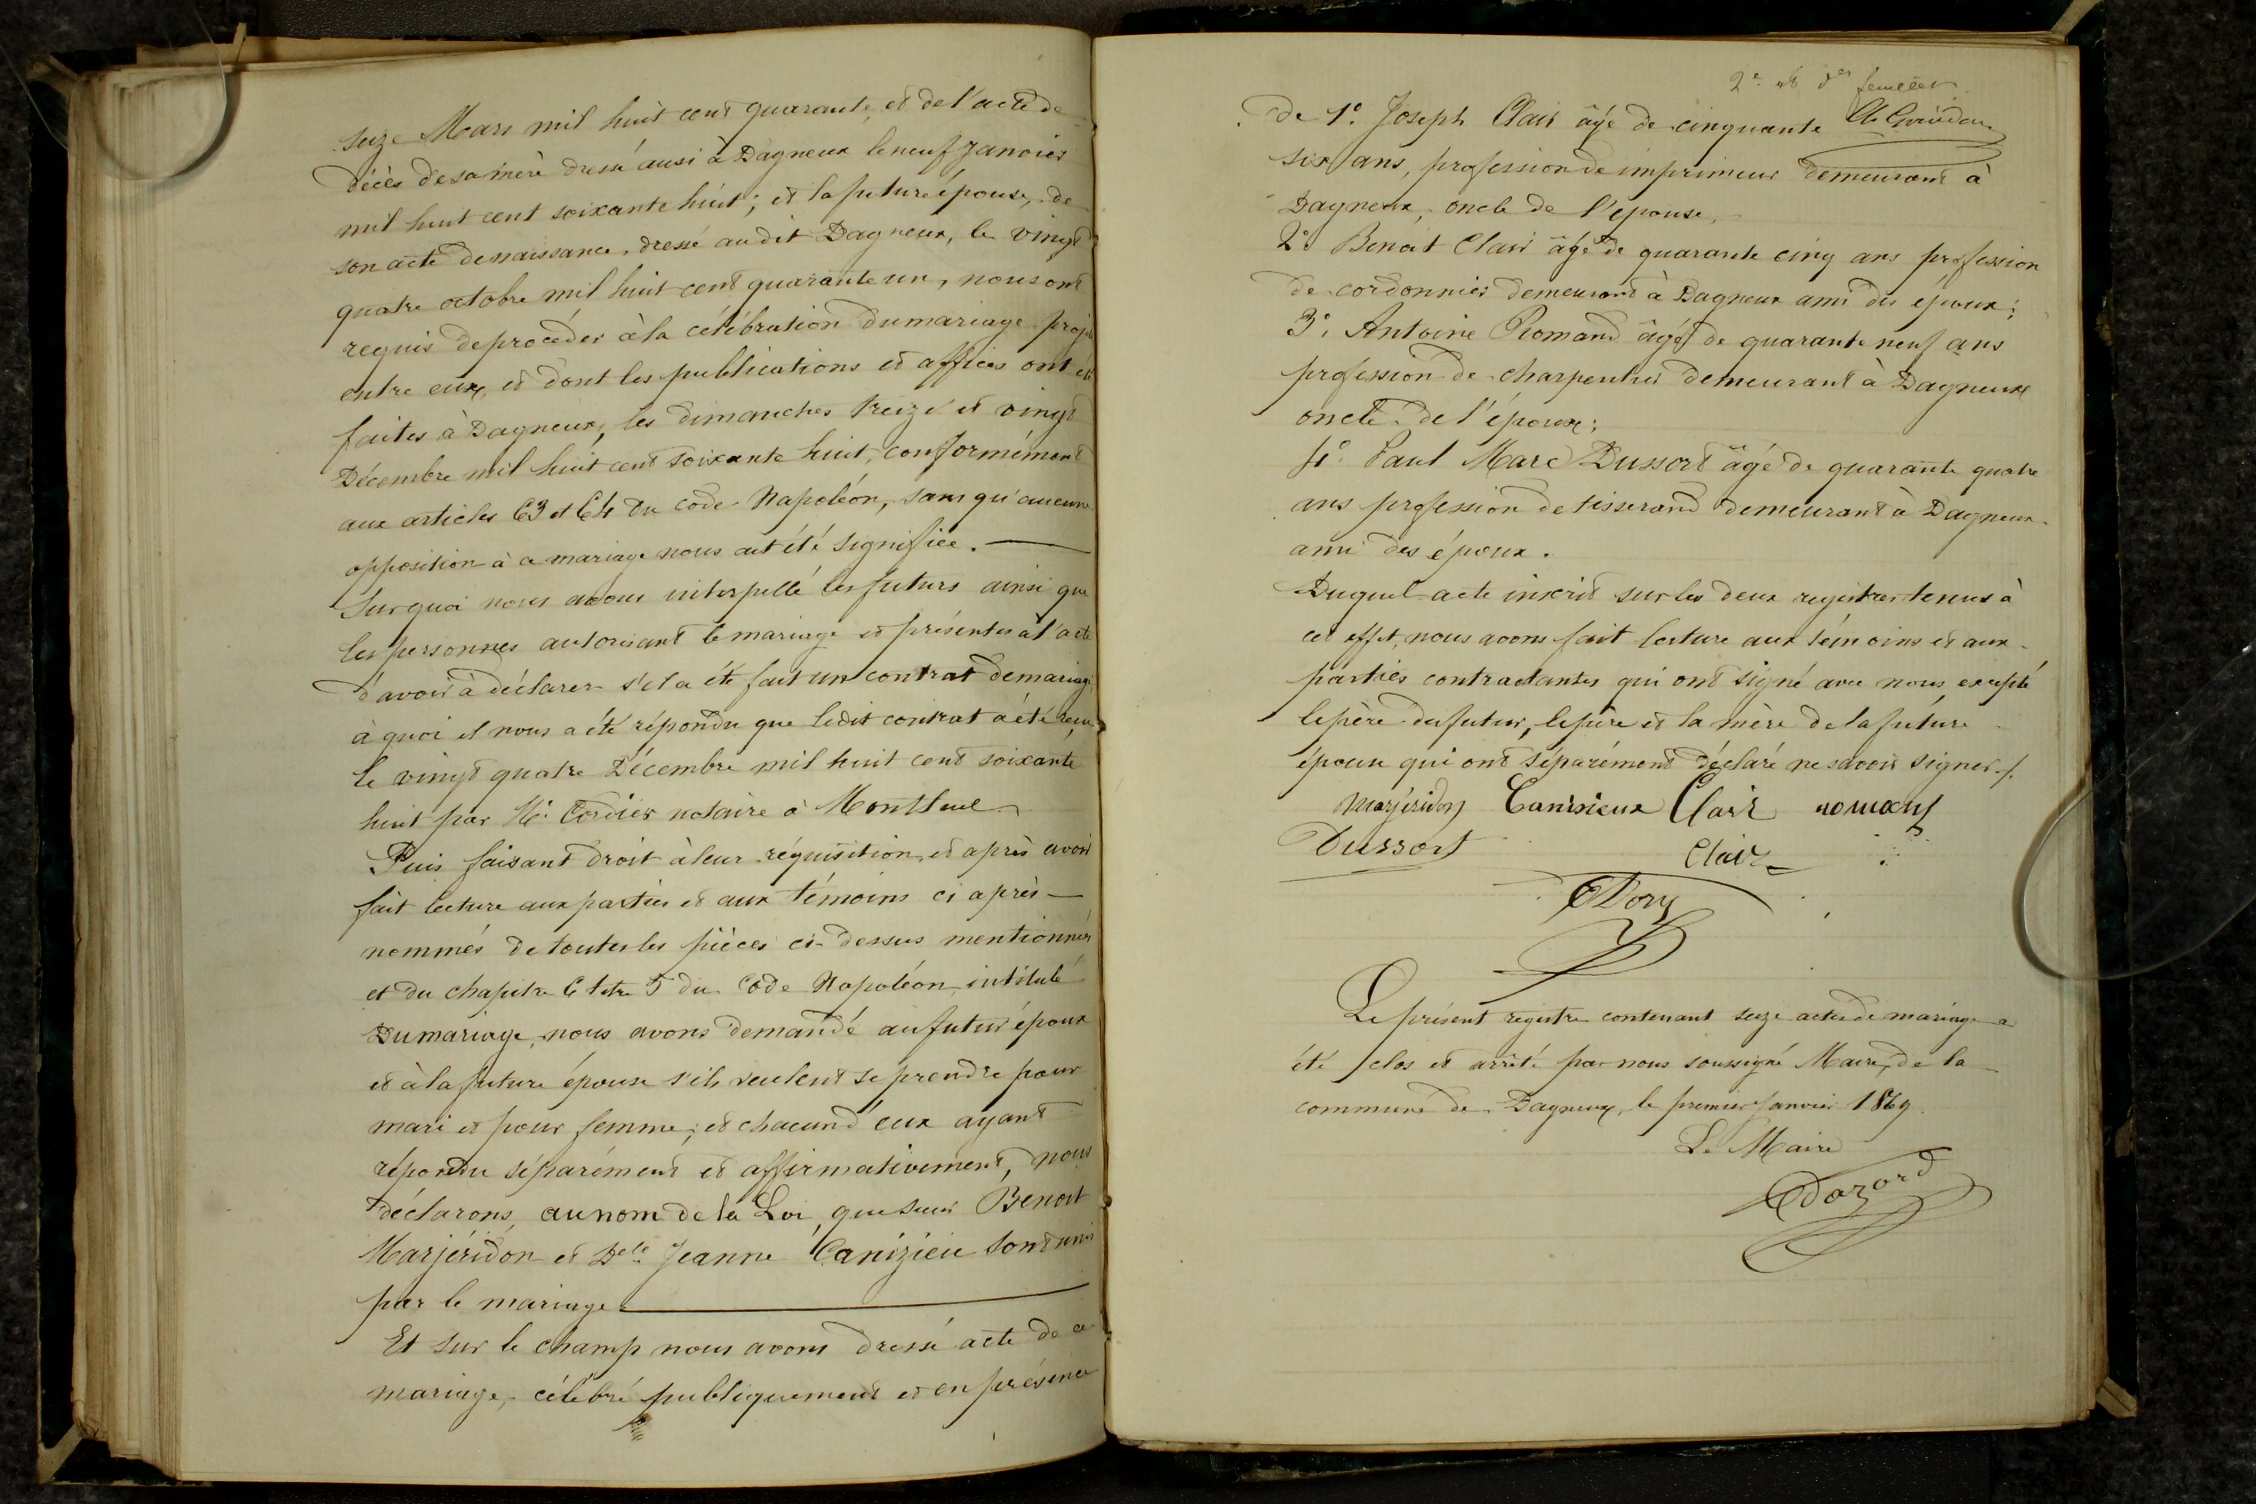 seize Mars mil huit cent quarante, et de l'acte de
décès de sa mère dressé aussi à Dagneux le neuf Janvier
mil huit cent soixante huit; et la future épouse, de
son acte de naissance, dressé audit Dagneux, le vingt
quatre octobre mil huit cent quarante un, nous ont
requis de procéder à la célébration du mariage projeté
entre eux, et dont les publications et affiches ont été
faites à Dagneux, les dimanches treize et vingt
Décembre mil huit cent soixante huit, conformément
aux articles 63 et 64 du Code Napoléon, sans qu'aucune
opposition à ce mariage nous ait été signifiée.
Sur quoi nous avons interpellé les futurs ainsi que
les personnes autorisant le mariage et présentes à l'acte
d'avoir à déclarer s'il a été fait un contrat de mariage
à quoi il nous a été répondu que ledit contrat a été reçu
le vingt quatre Décembre mil huit cent soixante
huit par Me Cordier notaire à Montluel
Puis faisant droit à leur réquisition, et après avoir
fait lecture aux parties et aux témoins ci après
nommés de toutes les pièces ci-dessus mentionnées
et du chapitre 6 titre 5 du Code Napoléon, intitulé
Du mariage, nous avons demandé au futur époux
et à la future épouse s'ils veulent se prendre pour
mari et pour femme; et chacun d'eux ayant
répondu séparément et affirmativement, nous
déclarons, au nom de la Loi, que Sieur Benoit
Marjéridon et Delle Jeanne Canizieu sont unis
par le mariage
Et sur le champ nous avons dressé acte de ce
mariage, célébré publiquement et en présence
2e et feuillet
de 1º. Joseph Clair âgé de cinquante
six ans, profession de imprimeur demeurant à
Dagneux, oncle de l'épouse,
2º. Benoit Clair âgé de quarante cinq ans profession
de cordonnier demeurant à Dagneux ami des époux;
3º. Antoine Romand âgé de quarante neuf ans
profession de charpentier demeurant à Dagneux
oncle de l'époux;
4º. Paul Marc Dussort âgé de quarante quatre
ans profession de tisserand demeurant à Dagneux
ami des époux.
Duquel acte inscrit sur les deux registres tenus à
cet effet, nous avons fait lecture aux témoins et aux
parties contractantes qui ont signé avec nous excepté
le père du futur, le père et la mère de la future
épouse qui ont séparément déclaré ne savoir signer.
Marjéridon Canisieux Clair romand
Dussort Clair
Dory
Le présent registre contenant seize actes de mariage a
été clos et arrêté par nous soussigné Maire, de la
commune de Dagneux, le premier Janvier 1869.
Le Maire